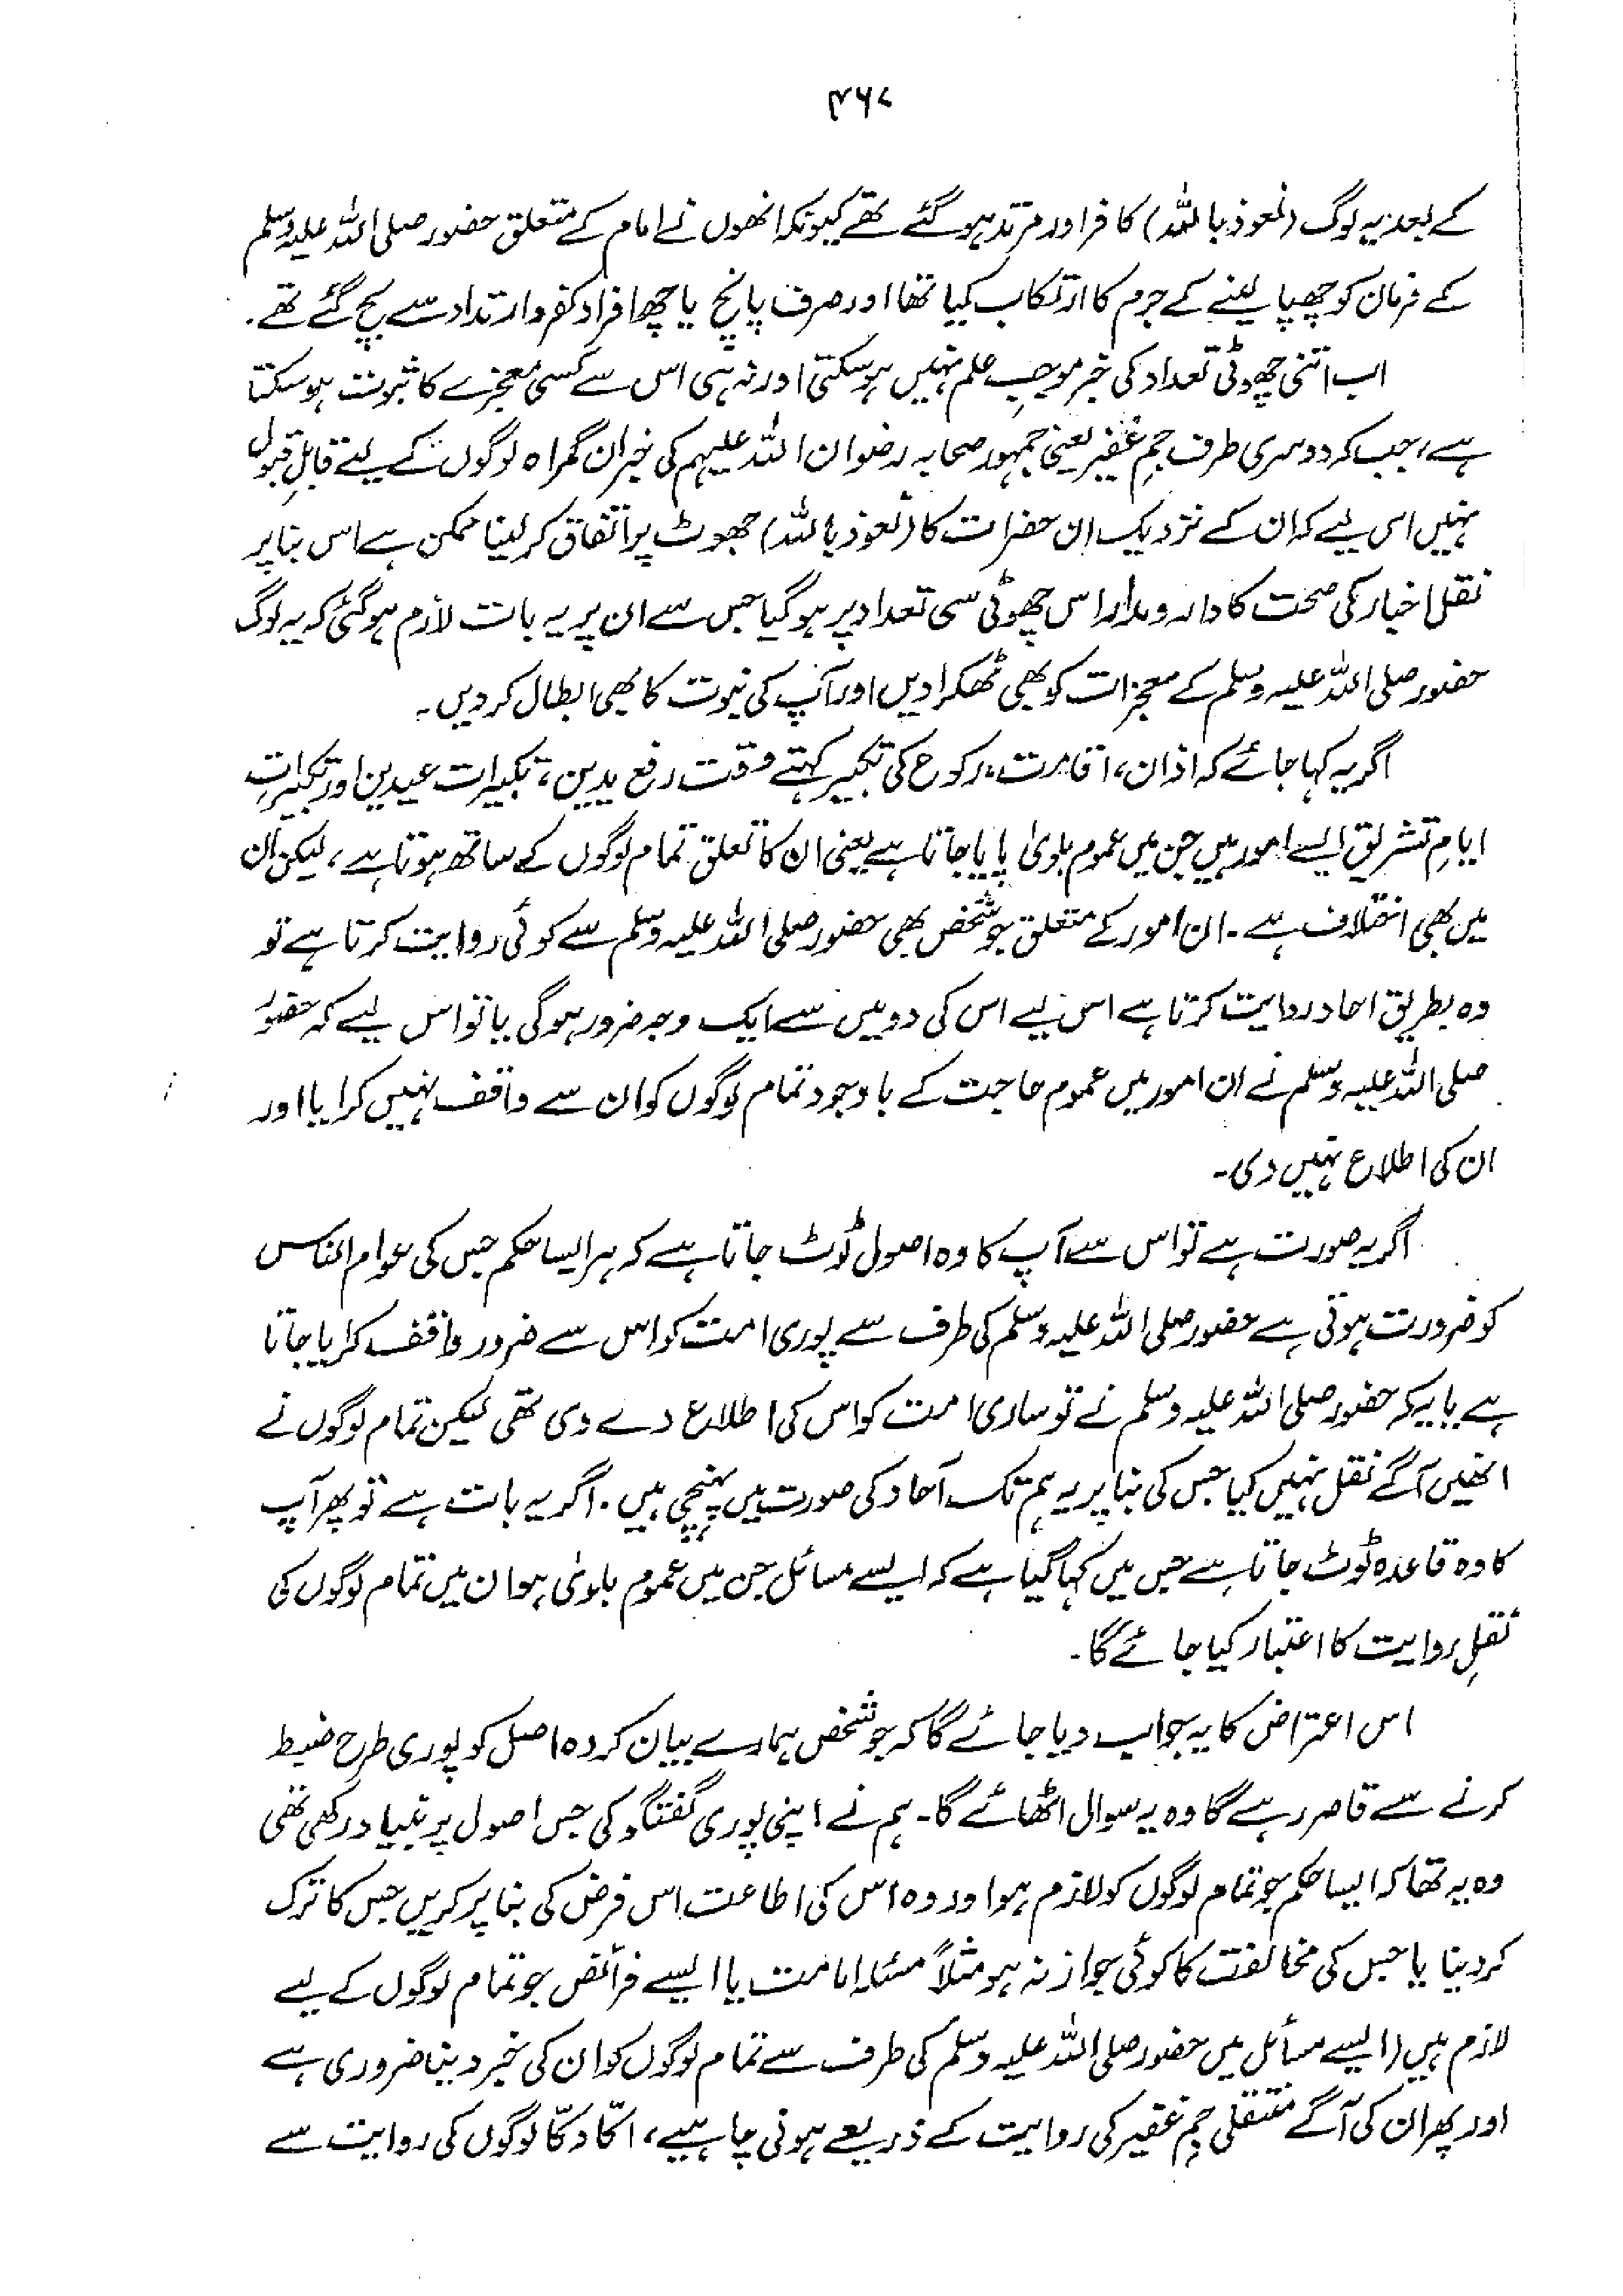 ۴۶۷
کے بعد یہ لوگ (نعوذ باللہ) کافر اور مرتد ہو گئے تھے کیونکہ انھوں نے امام کے متعلق حضور صلی اللہ علیہ وسلم
کے فرمان کو چھپا لینے کے جرم کا ارتکاب کیا تھا اور صرف پانچ یا چھ افراد کفر و ارتداد سے بچ گئے تھے۔
اب اتنی چھوٹی تعداد کی خبر موجبِ علم نہیں ہو سکتی اور نہ ہی اس سے کسی معجزے کا ثبوت ہو سکتا
ہے، جب کہ دوسری طرف جمِ غفیر یعنی جمہور صحابہ رضوان اللہ علیہم کی خبر ان گمراہ لوگوں کے لیے قابلِ قبول
نہیں اس لیے کہ ان کے نزدیک ان حضرات کا (نعوذ باللہ) جھوٹ پر اتفاق کر لینا ممکن ہے اس بنا پر
نقل اخبار کی صحت کا دار و مدار اس چھوٹی سی تعداد پر ہو گیا جس سے ان پر یہ بات لازم ہو گئی کہ یہ لوگ
حضور صلی اللہ علیہ وسلم کے معجزات کو بھی ٹھکرا دیں اور آپ کی نبوت کا بھی ابطال کر دیں۔
اگر یہ کہا جائے کہ اذان، اقامت، رکوع کی تکبیر کہتے وقت رفع یدین، تکبیرات عیدین اور تکبیراتِ
ایامِ تشریق ایسے امور ہیں جن میں عموم بلویٰ پایا جاتا ہے یعنی ان کا تعلق تمام لوگوں کے ساتھ ہوتا ہے، لیکن ان
میں بھی اختلاف ہے۔ ان امور کے متعلق جو شخص بھی حضور صلی اللہ علیہ وسلم سے کوئی روایت کرتا ہے تو
وہ بطریق احاد روایت کرتا ہے اس لیے اس کی دو میں سے ایک وجہ ضرور ہو گی یا تو اس لیے کہ حضور
صلی اللہ علیہ وسلم نے ان امور میں عموم حاجت کے باوجود تمام لوگوں کو ان سے واقف نہیں کرایا اور
ان کی اطلاع نہیں دی۔
اگر یہ صورت ہے تو اس سے آپ کا وہ اصول ٹوٹ جاتا ہے کہ ہر ایسا حکم جس کی عوام الناس
کو ضرورت ہوتی ہے حضور صلی اللہ علیہ وسلم کی طرف سے پوری امت کو اس سے ضرور واقف کرایا جاتا
ہے یا یہ کہ حضور صلی اللہ علیہ وسلم نے تو ساری امت کو اس کی اطلاع دے دی تھی لیکن تمام لوگوں نے
انھیں آگے نقل نہیں کیا جس کی بنا پر یہ ہم تک آحاد کی صورت میں پہنچی ہیں۔ اگر یہ بات ہے تو پھر آپ
کا وہ قاعدہ ٹوٹ جاتا ہے جس میں کہا گیا ہے کہ ایسے مسائل جن میں عموم بلویٰ ہو ان میں تمام لوگوں کی
نقلِ روایت کا اعتبار کیا جائے گا۔
اس اعتراض کا یہ جواب دیا جائے گا کہ جو شخص ہمارے بیان کردہ اصل کو پوری طرح ضبط
کرنے سے قاصر رہے گا وہ یہ سوال اٹھائے گا۔ ہم نے اپنی پوری گفتگو کی جس اصول پر بنیاد رکھی تھی
وہ یہ تھا کہ ایسا حکم جو تمام لوگوں کو لازم ہو اور وہ اس کی اطاعت اس فرض کی بنا پر کریں جس کا ترک
کر دینا یا جس کی مخالفت کا کوئی جواز نہ ہو مثلاً مسئلہ امامت یا ایسے فرائض جو تمام لوگوں کے لیے
لازم ہیں (ایسے مسائل میں حضور صلی اللہ علیہ وسلم کی طرف سے تمام لوگوں کو ان کی خبر دینا ضروری ہے
اور پھر ان کی آگے منتقلی جمِ غفیر کی روایت کے ذریعے ہونی چاہیے، اکّا دکّا لوگوں کی روایت سے